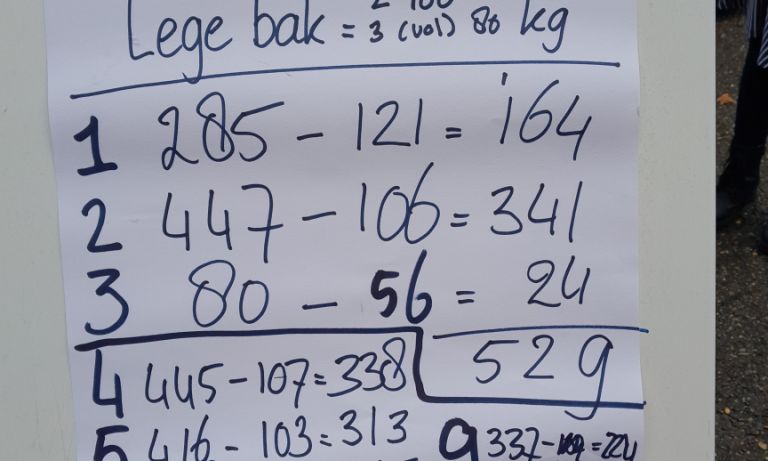 Lege bak = 3 (vol) 80 kg
1 285 - 121 = 164
2 447 - 106 = 341
3 80 - 56 = 24
529
4 445 - 107 = 338
5 416 - 103 = 313
9 337 - = 224